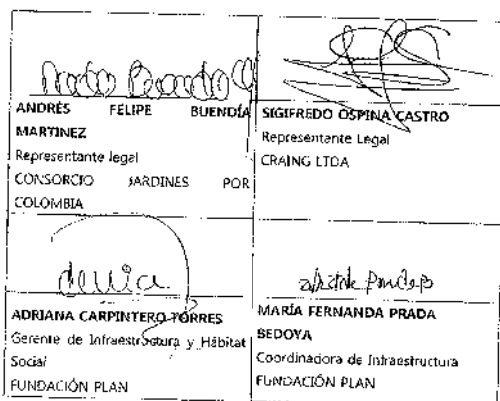 ANDRÉS FELIPE BUENDÍA
MARTINEZ
Representante legal
CONSORCIO JARDINES POR
COLOMBIA
SIGIFREDO OSPINA CASTRO
Representante Legal
CRAING LTDA
ADRIANA CARPINTERO TORRES
Gerente de Infraestructura y Hábitat
Social
FUNDACIÓN PLAN
MARÍA FERNANDA PRADA
BEDOYA
Coordinadora de Infraestructura
FUNDACIÓN PLAN